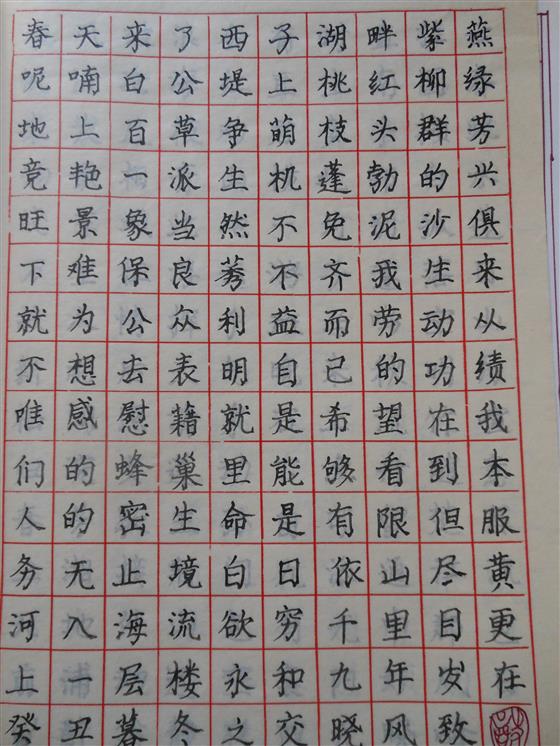 春天来了西子湖畔紫燕
呢喃白公堤上桃红柳绿
地上百草争萌枝头群芳
竞艳一派生机蓬勃的兴
旺景象当然不免泥沙俱
下难保良莠不齐我生来
就为公众利益而劳动从
不想去表明自己的功绩
唯感慰藉就是希望在我
们的蜂巢里能够看到本
人的密生命是有限但服
务无止境白日依山尽黄
河入海流欲穷千里目更
上一层楼永和九年岁在
癸丑暮冬之交晓风致